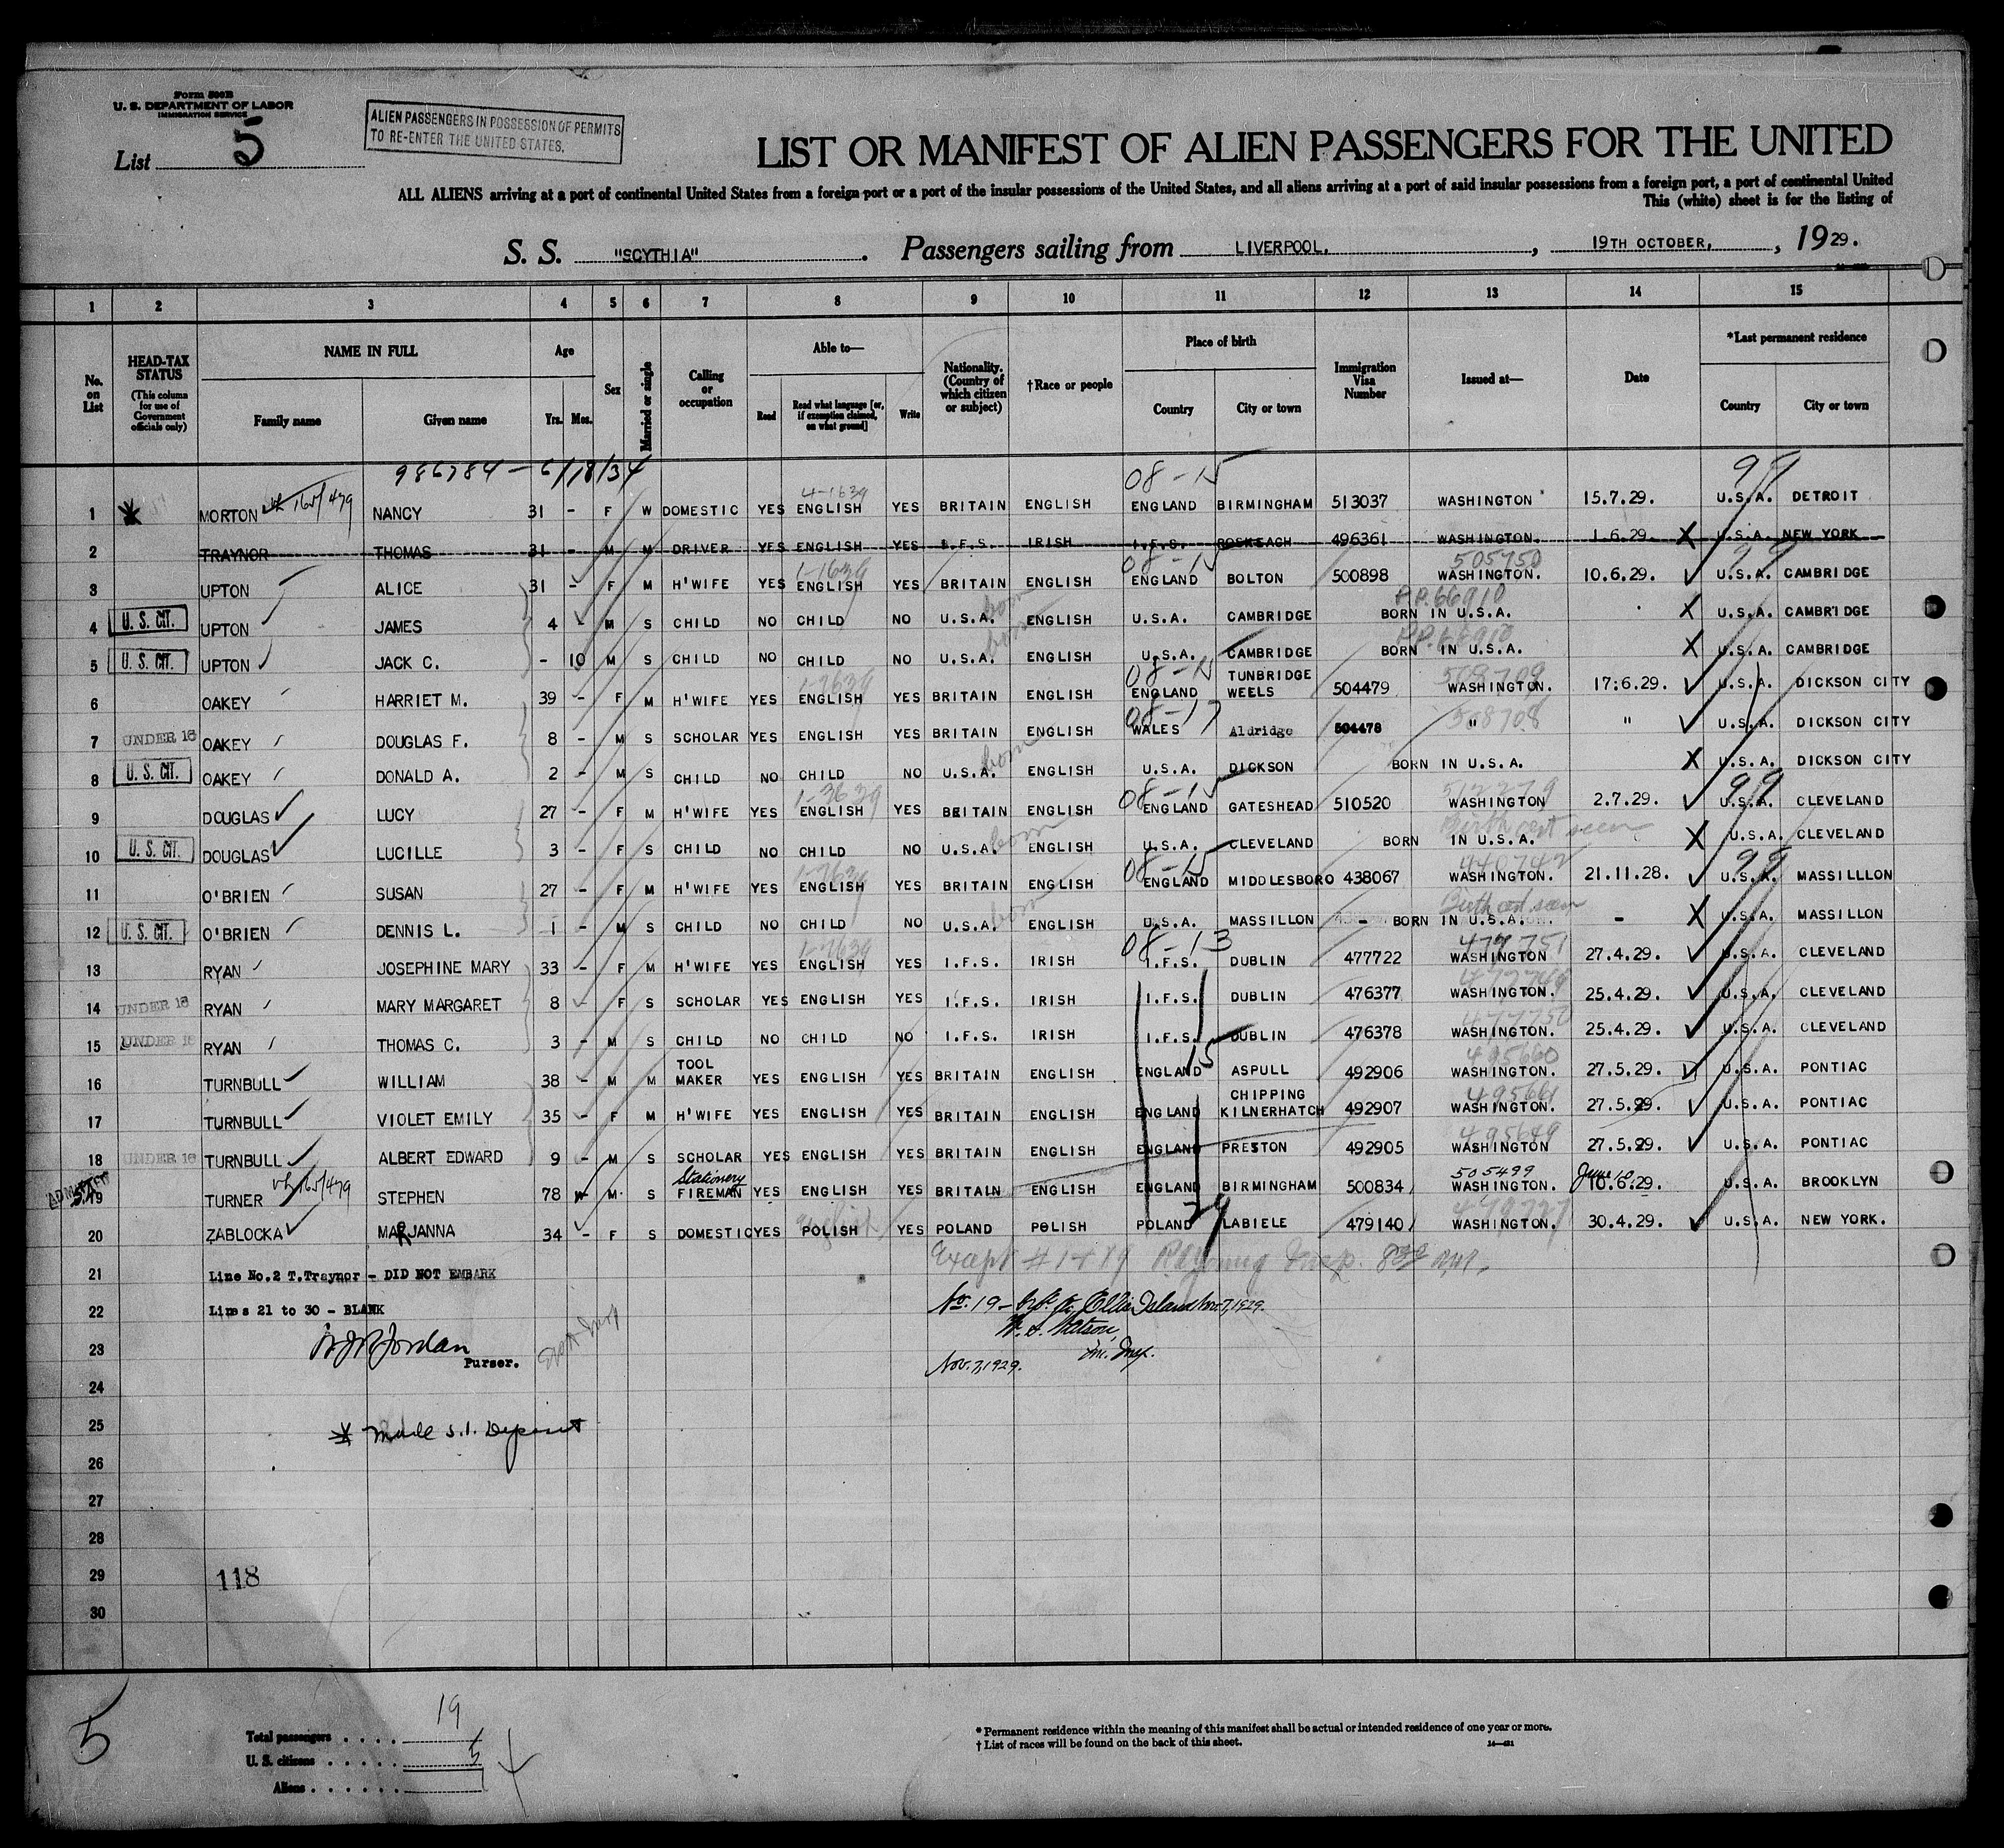 Form 500B
U. S. DEPARTMENT OF LABOR
IMMIGRATION SERVICE
List 5
ALIEN PASSENGERS IN POSSESSION OF PERMITS
TO RE-ENTER THE UNITED STATES.
LIST OR MANIFEST OF ALIEN PASSENGERS FOR THE UNITED
ALL ALIENS arriving at a port of continental United States from a foreign port or a port of the insular possessions of the United States, and all aliens arriving at a port of said insular possessions from a foreign port, a port of continental United
This (white) sheet is for the listing of
S. S. "SCYTHIA". Passengers sailing from LIVERPOOL, , 19TH OCTOBER, , 1929.
1 2 3 4 5 6 7 8 9 10 11 12 13 14 15
No. on List HEAD-TAX STATUS (This column for use of Government officials only) NAME IN FULL Family name Given name Age Yrs. Mos. Sex Married or single Calling or occupation Able to— Read Read what language [or, if exemption claimed, on what ground] Write Nationality. (Country of which citizen or subject) †Race or people Place of birth Country City or town Immigration Visa Number Issued at— Date *Last permanent residence Country City or town
986784 - 6/18/34 08-15 99
4-1639
1 MORTON 165/479 NANCY 31 - F W DOMESTIC YES ENGLISH YES BRITAIN ENGLISH ENGLAND BIRMINGHAM 513037 WASHINGTON 15.7.29. U.S.A. DETROIT
2 TRAYNOR THOMAS 31 - M M DRIVER YES ENGLISH YES I.F.S. IRISH I.F.S. 496361 WASHINGTON. 1.6.29. X U.S.A. NEW YORK
1-1639 08-15 505750 99
3 UPTON ALICE 31 - F M H'WIFE YES ENGLISH YES BRITAIN ENGLISH ENGLAND BOLTON 500898 WASHINGTON. 10.6.29. U.S.A. CAMBRIDGE
born P.P.66910
4 U. S. CIT. UPTON JAMES 4 M S CHILD NO CHILD NO U.S.A. ENGLISH U.S.A. CAMBRIDGE BORN IN U.S.A. X U.S.A. CAMBRIDGE
born P.P.66910
5 U. S. CIT. UPTON JACK C. - 10 M S CHILD NO CHILD NO U.S.A. ENGLISH U.S.A. CAMBRIDGE BORN IN U.S.A. X U.S.A. CAMBRIDGE
08-15 508709
6 OAKEY HARRIET M. 39 - F M H'WIFE YES ENGLISH YES BRITAIN ENGLISH ENGLAND TUNBRIDGE WEELS 504479 WASHINGTON. 17:6.29. U.S.A. DICKSON CITY
08-17 508708
7 UNDER 16 OAKEY DOUGLAS F. 8 - M S SCHOLAR YES ENGLISH YES BRITAIN ENGLISH WALES Aldridge 504478 " " U.S.A. DICKSON CITY
born
8 U. S. CIT. OAKEY DONALD A. 2 - M S CHILD NO CHILD NO U.S.A. ENGLISH U.S.A. DICKSON BORN IN U.S.A. X U.S.A. DICKSON CITY
1-3639 08-15 512279 99
9 DOUGLAS LUCY 27 - F M H'WIFE YES ENGLISH YES BRITAIN ENGLISH ENGLAND GATESHEAD 510520 WASHINGTON 2.7.29. U.S.A. CLEVELAND
born Birth cert seen
10 U. S. CIT. DOUGLAS LUCILLE 3 - F S CHILD NO CHILD NO U.S.A. ENGLISH U.S.A. CLEVELAND BORN IN U.S.A. X U.S.A. CLEVELAND
08-15 440742 99
11 O'BRIEN SUSAN 27 - F M H'WIFE YES ENGLISH YES BRITAIN ENGLISH ENGLAND MIDDLESBORO 438067 WASHINGTON. 21.11.28. U.S.A. MASSILLLON
born Birth cert seen
12 U. S. CIT. O'BRIEN DENNIS L. 1 - M S CHILD NO CHILD NO U.S.A. ENGLISH U.S.A. MASSILLON - BORN IN U.S.A. - X U.S.A. MASSILLON
08-13 477751
13 RYAN JOSEPHINE MARY 33 - F M H'WIFE YES ENGLISH YES I.F.S. IRISH I.F.S. DUBLIN 477722 WASHINGTON 27.4.29. U.S.A. CLEVELAND
14 UNDER 16 RYAN MARY MARGARET 8 F S SCHOLAR YES ENGLISH YES I.F.S. IRISH I.F.S. DUBLIN 476377 WASHINGTON. 25.4.29. U.S.A. CLEVELAND
477750
15 UNDER 16 RYAN THOMAS C. 3 - M S CHILD NO CHILD NO I.F.S. IRISH I.F.S. DUBLIN 476378 WASHINGTON. 25.4.29. U.S.A. CLEVELAND
15 495660
16 TURNBULL WILLIAM 38 - M M TOOL MAKER YES ENGLISH YES BRITAIN ENGLISH ENGLAND ASPULL 492906 WASHINGTON. 27.5.29. U.S.A. PONTIAC
495661
17 TURNBULL VIOLET EMILY 35 - F M H'WIFE YES ENGLISH YES BRITAIN ENGLISH ENGLAND CHIPPING KILNERHATCH 492907 WASHINGTON. 27.5.29. U.S.A. PONTIAC
495649
18 UNDER 16 TURNBULL ALBERT EDWARD 9 - M S SCHOLAR YES ENGLISH YES BRITAIN ENGLISH ENGLAND PRESTON 492905 WASHINGTON 27.5.29. U.S.A. PONTIAC
Stationery 505499 June 10
ADMITTED 19 TURNER 165/479 STEPHEN 78 M S FIREMAN YES ENGLISH YES BRITAIN ENGLISH ENGLAND BIRMINGHAM 500834 WASHINGTON. 10.6.29. U.S.A. BROOKLYN
24 479727
20 ZABLOCKA MARJANNA 34 - F S DOMESTIC YES POLISH YES POLAND POLISH POLAND LABIELE 479140 WASHINGTON. 30.4.29. U.S.A. NEW YORK.
Except # 1 + 19
21 Line No.2 T.Traynor - DID NOT EMBARK
22 Lines 21 to 30 - BLANK
No. 19 - Ellis Island Nov. 7, 1929.
W. S. Watson,
23 Jordan Purser.
Nov. 7, 1929.
24
25 * Made S.I. Deposit
26
27
28
29 118
30
5
Total passengers . . . . 19
U. S. citizens . . . . . 5
Aliens . . . . . .
* Permanent residence within the meaning of this manifest shall be actual or intended residence of one year or more.
† List of races will be found on the back of this sheet.